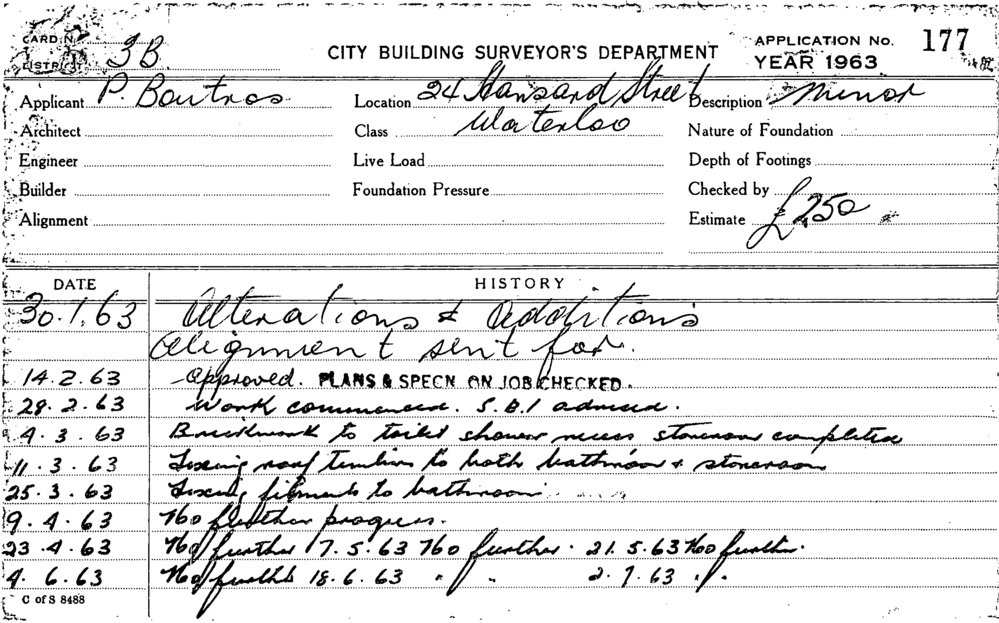 CARD No. 3B
DISTRICT
CITY BUILDING SURVEYOR'S DEPARTMENT
APPLICATION No. 177
YEAR 1963
Applicant P. Boutros Location 24 Hansard Street Description Minor
Architect Class Waterloo Nature of Foundation
Engineer Live Load Depth of Footings
Builder Foundation Pressure Checked by
Alignment Estimate £250
DATE HISTORY
30.1.63 Alterations & additions
alignment sent for.
14.2.63 Approved. PLANS & SPECN. ON JOB CHECKED.
28.2.63 Work commenced. S.B.I advised.
4.3.63 Brickwork to toilet shower recess storeroom completed
11.3.63 Fixing roof timbers to both bathroom & storeroom
25.3.63 Fixing fitments to bathroom
9.4.63 No further progress.
23.4.63 No further 7.5.63 No further. 21.5.63 No further.
4.6.63 No further 18.6.63 " " 2.7.63 " "
C of S 8488